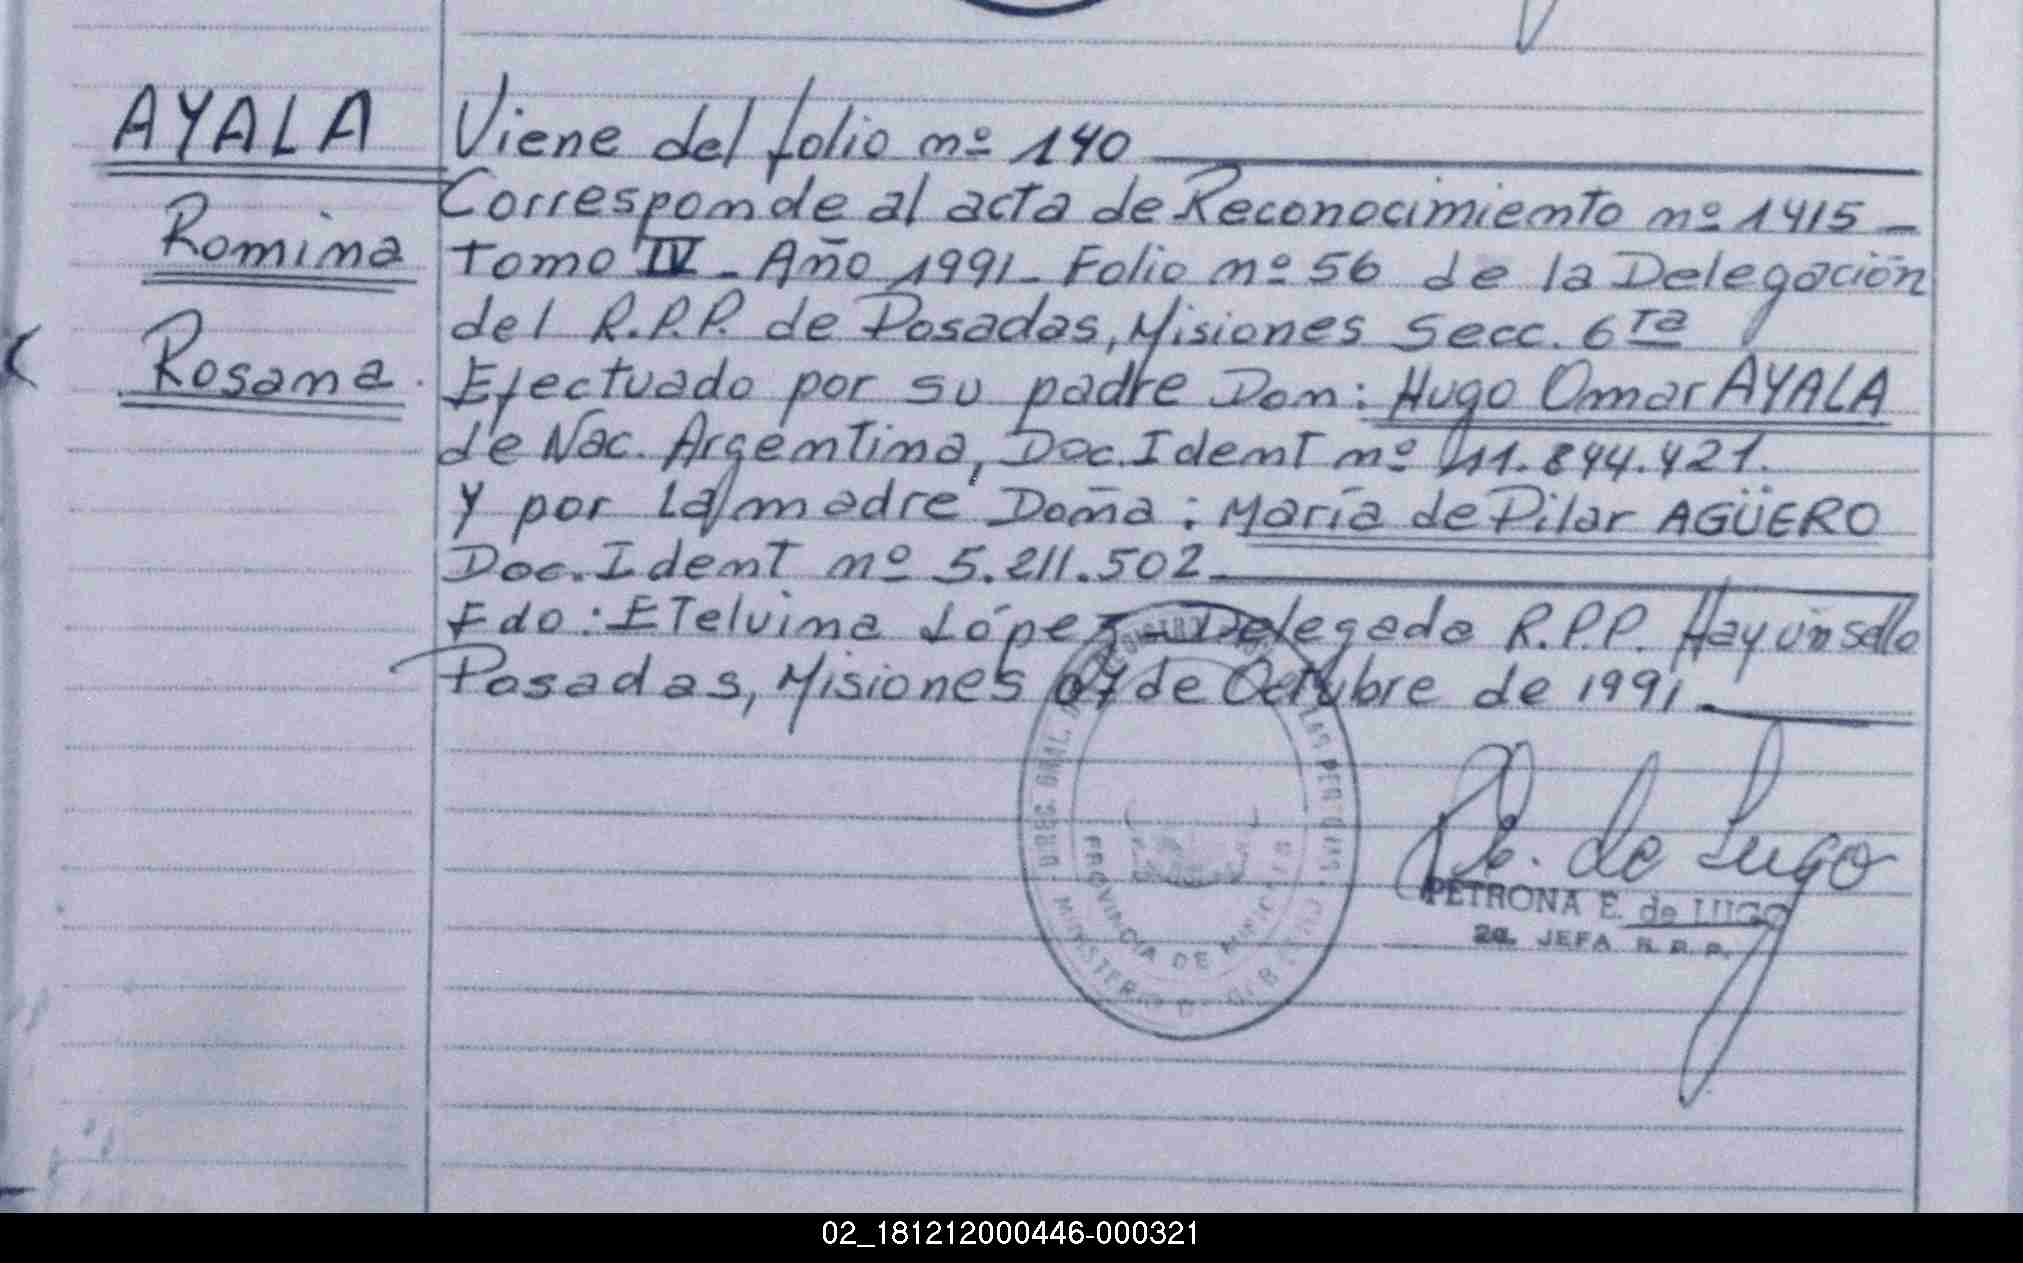 AYALA
Romina
Rosana.
Viene del folio nº 140
Corresponde al acta de Reconocimiento nº 1415 -
tomo IV - Año 1991 - Folio nº 56 de la Delegación
del R.P.P. de Posadas, Misiones Secc. 6ta
Efectuado por su padre Don: Hugo Omar AYALA
de Nac. Argentina, Doc. Ident nº 11.844.421.
y por la madre Doña: María de Pilar AGÜERO
Doc. Ident nº 5.211.502
Fdo: ETelvina López - Delegada R.P.P. Hay un sello
Posadas, Misiones 07 de Octubre de 1991
DIREC. GRAL. DE LAS PERSONAS
PROVINCIA DE MISIONES
MINISTERIO DE GOBIERNO
E. de Lugo
PETRONA E. de LUGO
2a. JEFA R. P. P.
02_181212000446-000321